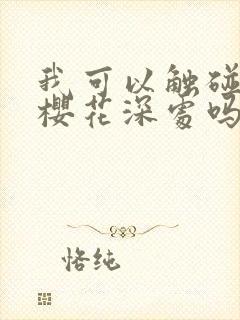 我可以触碰
樱花深处吗
恪纯